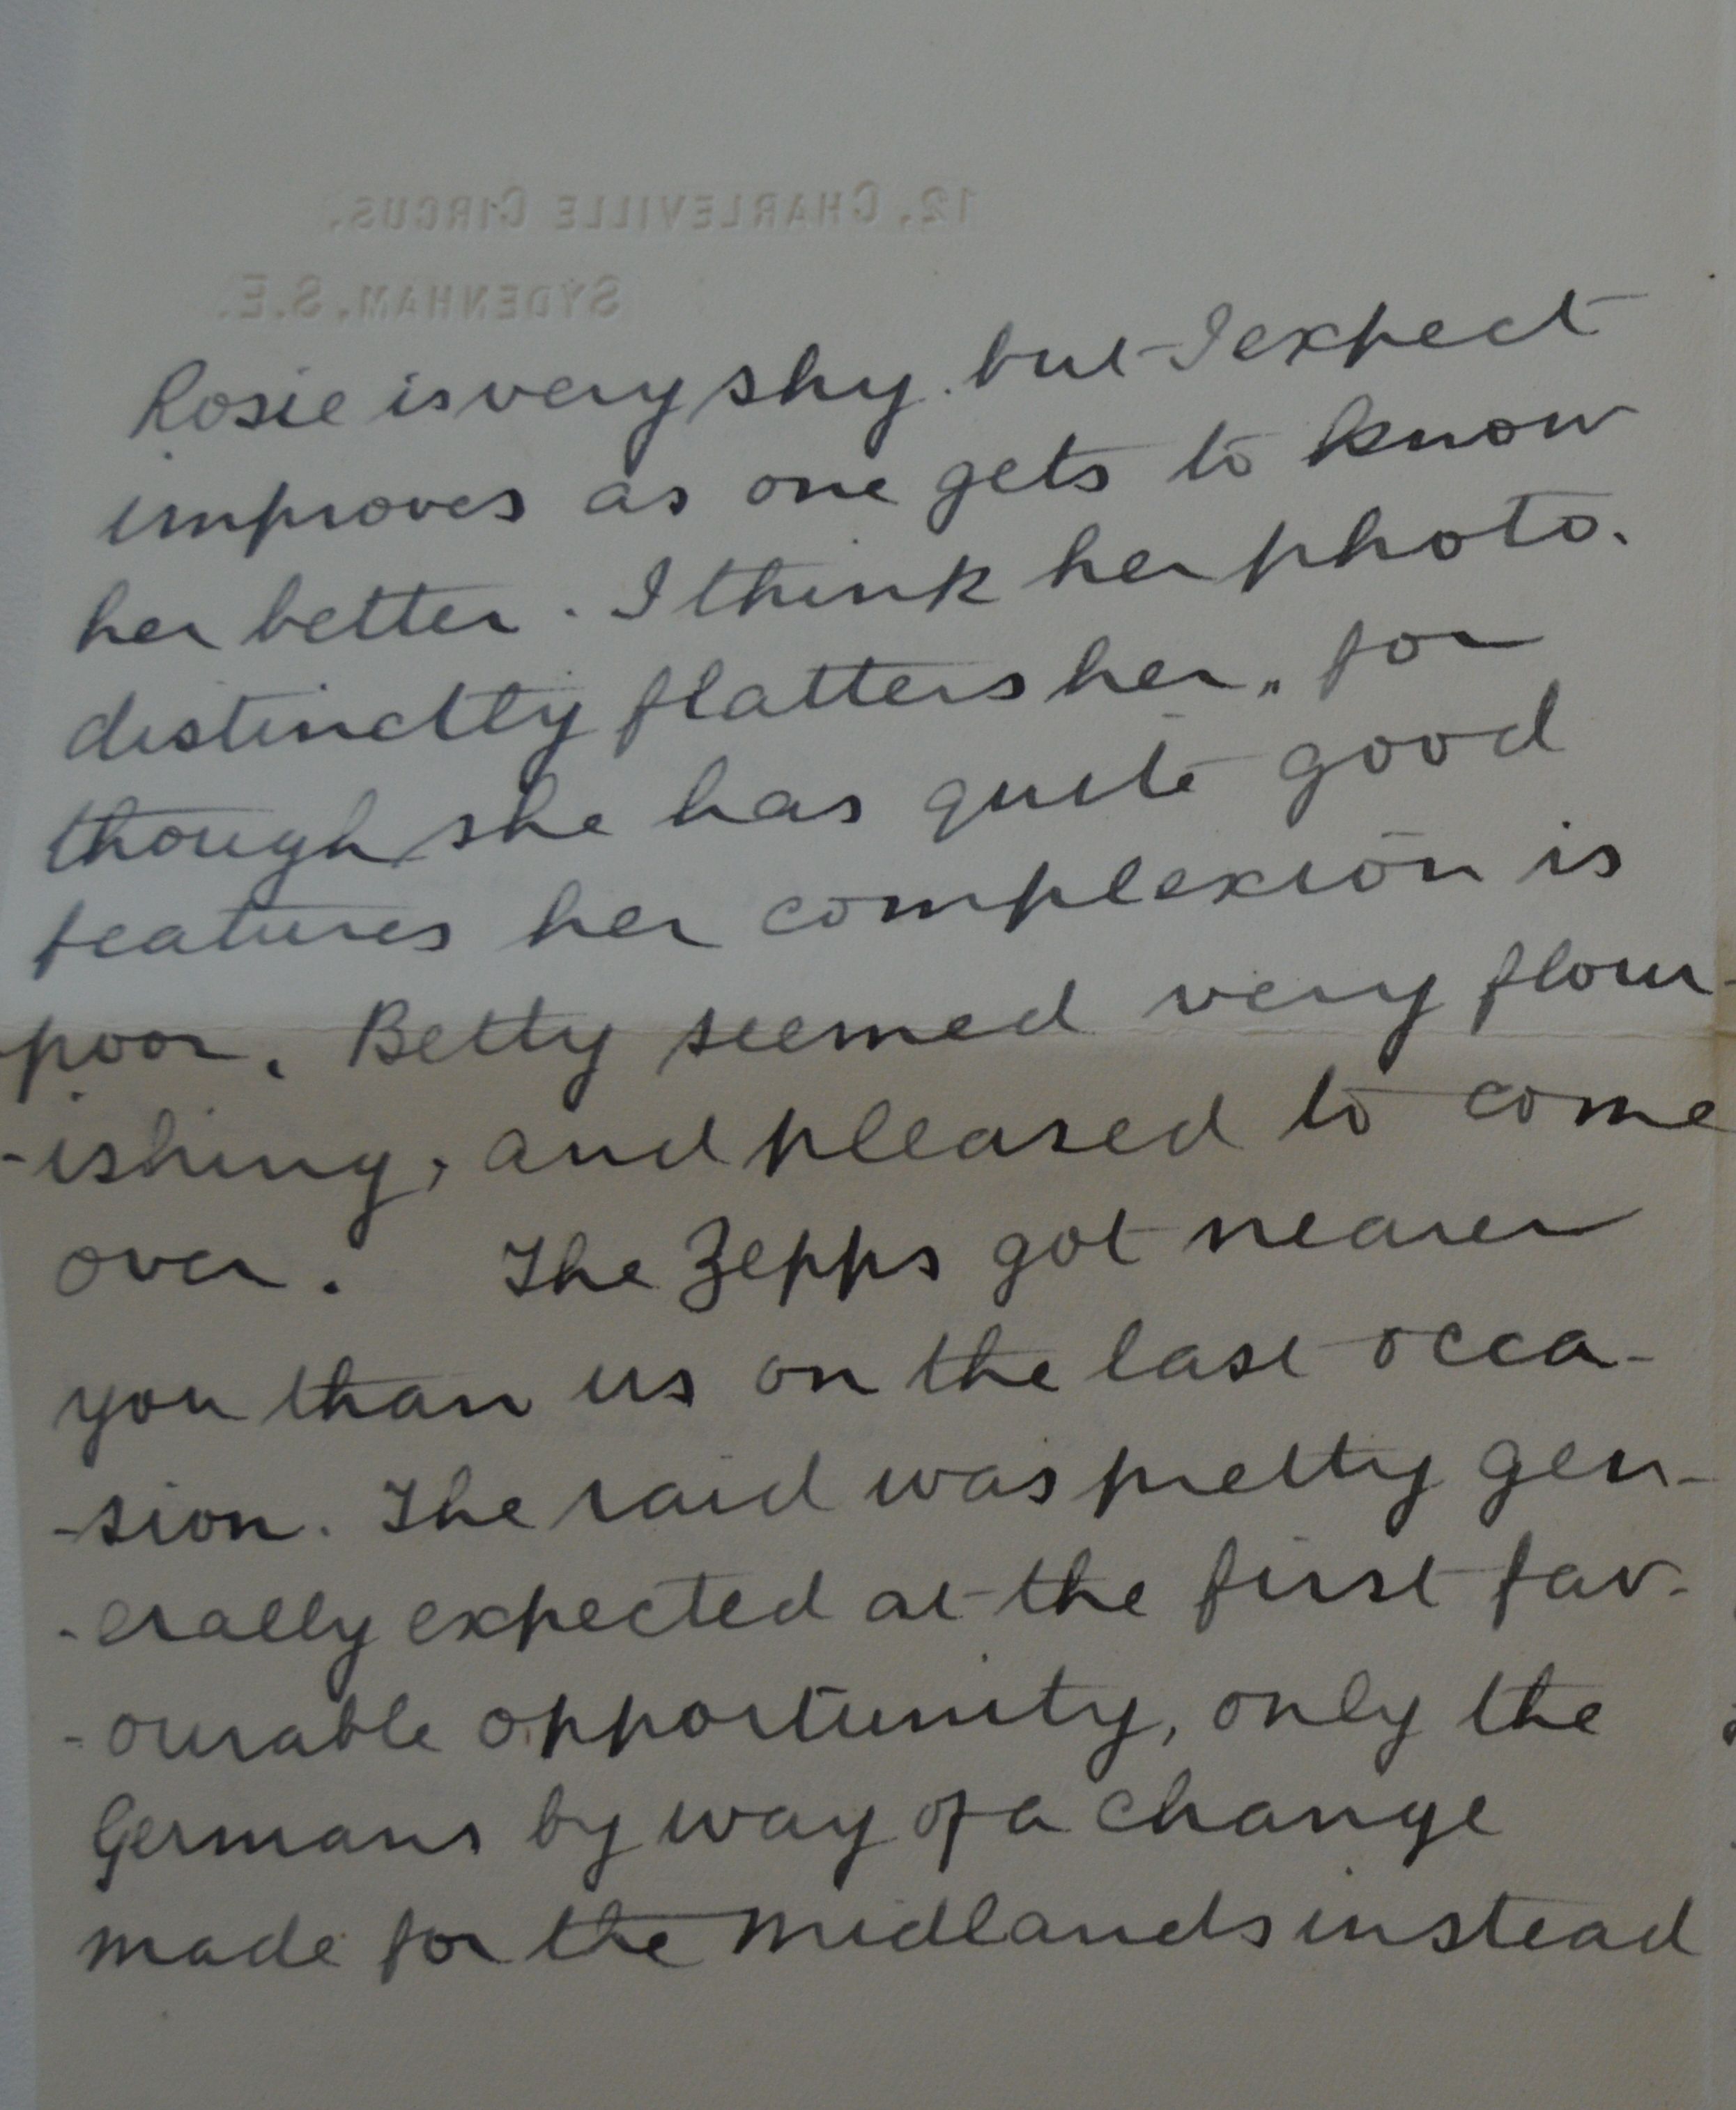 12, CHARLEVILLE CIRCUS.
SYDENHAM, S.E.
Rosie is very shy. but I expect
improves as one gets to know
her better. I think her photo.
distinctly flatters her, for
though she has quite good
features her complexion is
poor. Betty seemed very flour-
-ishing, and pleased to come
over. The Zepps got nearer
you than us on the last occa-
-sion. The raid was pretty gen-
-erally expected at the first fav-
-ourable opportunity, only the
Germans by way of a change
made for the Midlands instead